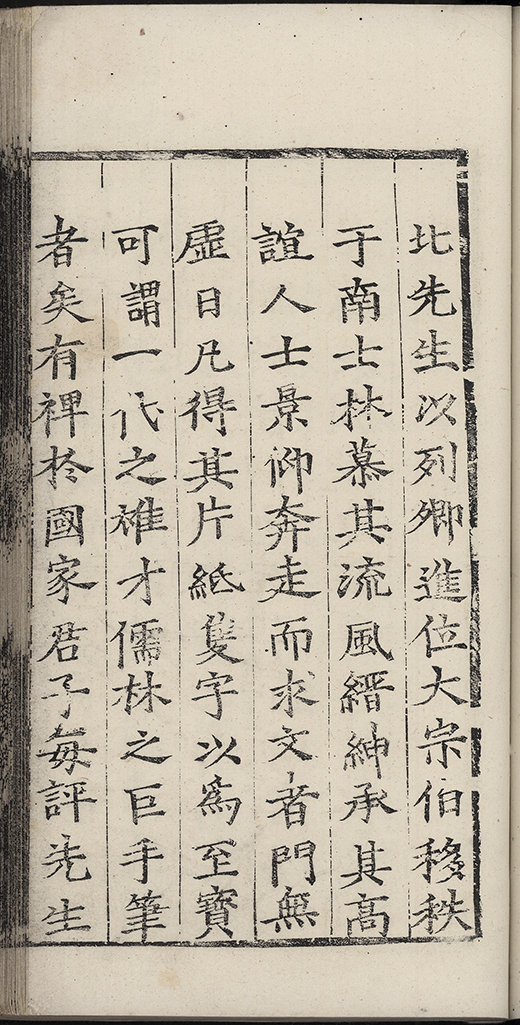 北先生以列卿進位大宗伯移秩
于南士林慕其流風縉紳承其高
誼人士景仰奔走而求文者門無
虛日凡得其片紙隻字以為至寶
可謂一代之雄才儒林之巨手筆
者矣有裨於國家君子每評先生